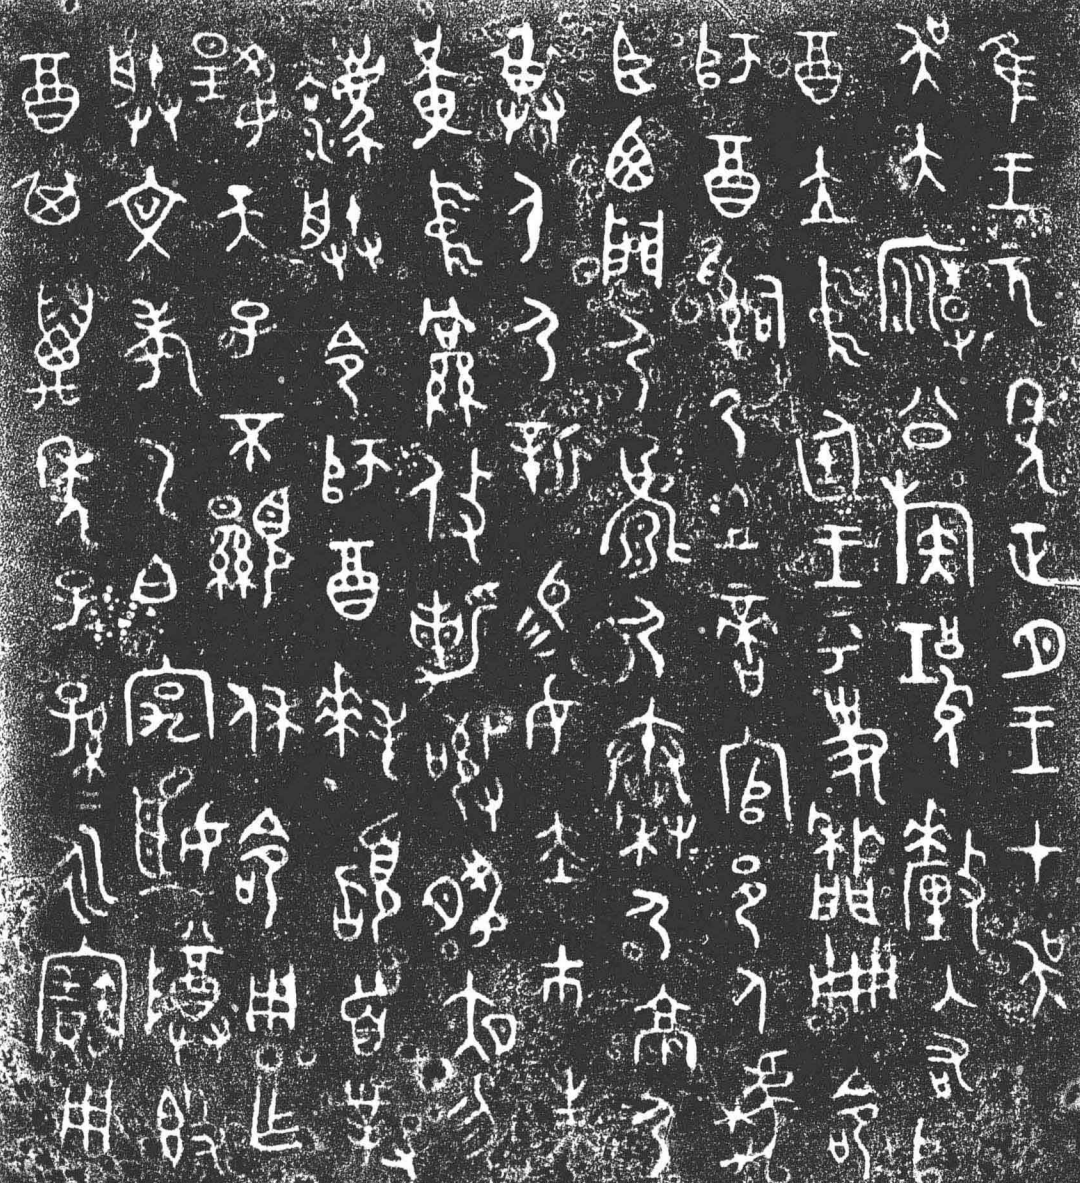 隹王元年正月王才吳
吳大廟公族𤲞釐入右師
酉立中廷王乎史𤖣冊命
師酉𤔲乃且啻官邑人虎
臣西門尸𡩜尸秦尸京尸
畀身尸新易女赤巿朱
黃中䌹攸勒敬夙夜勿
灋朕令師酉拜𩒨首對
揚天子不顯休命用乍
朕文考乙白宄姬尊𣪘
酉其萬年子子孫孫永寶用